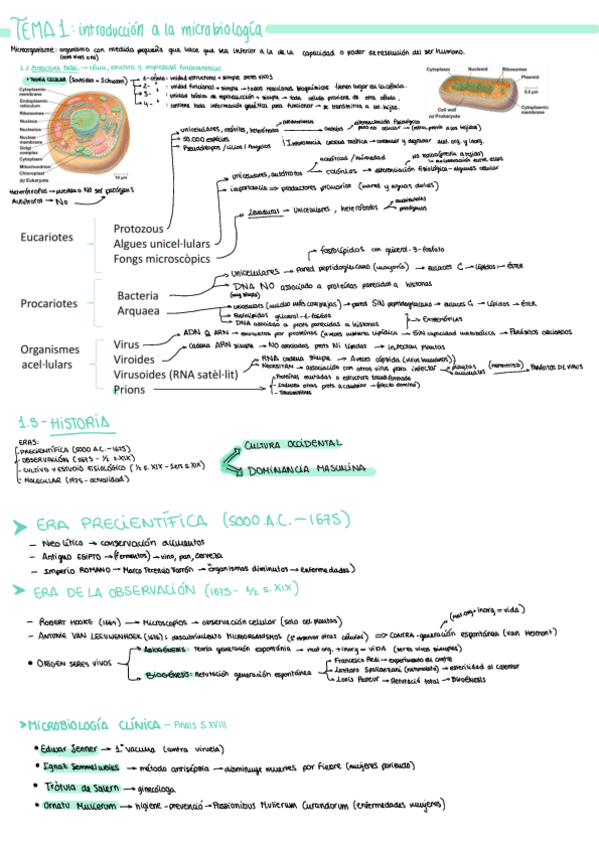 TEMA 1: introducción a la microbiología
Microorganisme: organismo con medida pequeña que hace que sea inferior a la de la capacidad o poder de resolución del ser humano.
1.2 ESTRUCTURA BASAL → célula, estructura y propiedades fundamentales
TEORÍA CELULAR (Schleiden + Schwann)
1- célula: unidad estructural + simple seres vivos
2- unidad funcional + simple → todas reacciones bioquímicas tienen lugar en la célula.
3- unidad básica de reproducción + simple → toda célula proviene de otra célula.
4- contiene toda información genética para funcionar → se transmitirá a cel. hijas.
Cytoplasmic membrane
Endoplasmic reticulum
Ribosomes
Nucleus
Nucleolus
Nuclear membrane
Golgi complex
Cytoplasm
Mitochondrion
Chloroplast
(b) Eukaryote
10 μm
Cytoplasm
Nucleoid
Ribosomes
Plasmid
0.5 μm
Cell wall
Cytoplasmic membrane
(a) Prokaryote
Heterótrofos → pueden o NO ser patógenos
Autótrofos → No
unicelulares, móviles, heterótrofos
50.000 especies
Pseudópodos / cilios / flagelos
unicelulares, autótrofos
acuáticas / humedad
colonias
importancia → productores primarios (mares y aguas dulces)
Levaduras → Unicelulares, heterótrofos
Eucariotes
Protozous
Algues unicel·lulars
Fongs microscòpics
Procariotes
Bacteria
Arquaea
fosfolípidos con glicerol-3-fosfato
unicelulares → pared peptidoglucano (mayoría) → enlaces C → lípidos → ÉSTER
DNA NO asociado a proteínas parecidas a histonas
DNA asociado a prots parecidas a histonas
EXTREMÓFILAS
Organismes acel·lulars
Virus
Viroides
Virusoides (RNA satèl·lit)
Prions
ADN o ARN → envueltos por proteínas (a veces cubierta lipídica → SIN capacidad metabólica → PARÁSITOS OBLIGADOS
Cadena ARN simple → NO asociadas prots Ni lípidos → infectan plantas
RNA cadena simple → A veces cápsida (virus humanos)
NECESITAN → asociación con otros virus para infectar
plantas
animales
PARÁSITOS DE VIRUS
Inducen otras prots. a cambiar → (efecto dominó)
Transmisibles
1.3 - HISTORIA
ERAS:
- PRECIENTÍFICA (5000 A.C. - 1675)
- OBSERVACIÓN (1675 - 1/2 s.XIX)
- CULTIVO Y ESTUDIO FISIOLÓGICO (1/2 s. XIX - 1975 s.XX)
- MOLECULAR (1975 - actualidad)
CULTURA OCCIDENTAL
DOMINANCIA MASCULINA
ERA PRECIENTÍFICA (5000 A.C. - 1675)
- Neolítico → conservación alimentos
- Antiguo EGIPTO → (Fermentos) → vino, pan, cerveza
- Imperio ROMANO → Marco Terencio Varrón → organismos diminutos → enfermedades)
ERA DE LA OBSERVACIÓN (1675 - 1/2 s. XIX)
(mat.org + inorg = vida)
- ROBERT HOOKE (1664) → Microscopios → observación celular (solo cel. plantas)
- ANTONIE VAN LEEUWENHOEK (1676): descubrimiento MICROORGANISMOS (1º observar otras células) ⇒ CONTRA-generación espontánea (Van Helmont)
ORIGEN SERES VIVOS
ABIOGÉNESIS: Teoría generación espontánea → mat org. + inorg = VIDA (seres vivos simples)
BIOGÉNESIS: Refutación generación espontánea
Francesco Redi → experimento en contra
Lazzaro Spallanzani (naturalista) → esterilidad al calentar
Louis Pasteur → Refutació total → BIOGÉNESIS
MICROBIOLOGÍA CLÍNICA - Finals S.XVIII
Edwar Jenner → 1ª vacuna (contra viruela)
Ignaz Semmelweiss → método antisèpsia → disminuye muertes por Fiebre (mujeres pariendo)
Tròtula de Salern → ginecóloga
Ornatu Mulierum → higiene-prevenció → Passionibus Mulierum Curandorum (enfermedades mujeres)